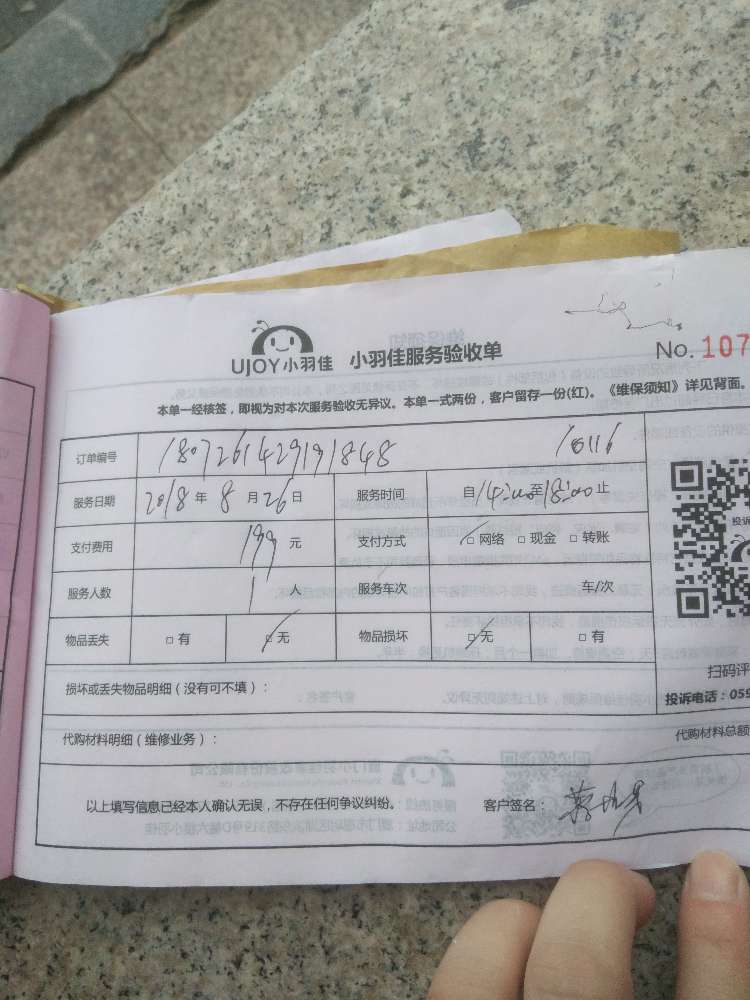 UJOY小羽佳 小羽佳服务验收单
No. 107
本单一经核签，即视为对本次服务验收无异议。本单一式两份，客户留存一份(红)。《维保须知》详见背面。
订单编号 1807261429191848 10116
服务日期 2018 年 8 月 26 日 服务时间 自 14:00 至 18:00 止
支付费用 199 元 支付方式 □ 网络 □ 现金 □ 转账
服务人数 1 人 服务车次 车/次
物品丢失 □ 有 □ 无 物品损坏 □ 无 □ 有
投诉
扫码评
损坏或丢失物品明细（没有可不填）：
投诉电话：059
代购材料明细（维修业务）：
代购材料总额
以上填写信息已经本人确认无误，不存在任何争议纠纷。 客户签名：